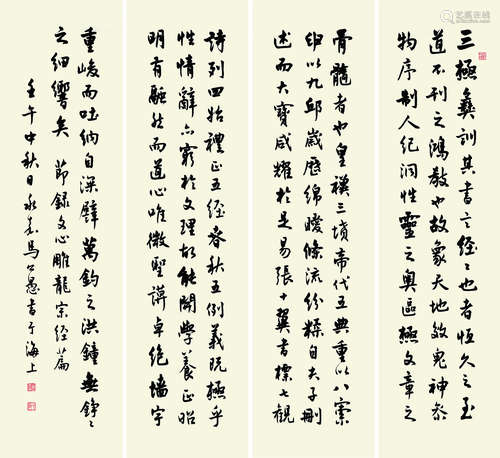 三極彝訓其書言經〻也者恒久之至
道不刊之鴻教也故象天地效鬼神参
物序制人紀洞性靈之奥區極文章之
骨髓者也皇禩三墳帝代五典重以八索
申以九邱歲歷綿曖條流紛糅自夫子刪
述而大寶咸耀於是易張十翼書標七觀
詩列四始禮正五經春秋五例義既極乎
性情辭亦窮於文理故能開學養正昭
明有融然而道心唯微聖謨卓絶墻宇
重峻而吐納自深譬萬鈞之洪鐘無錚〻
之細響矣 節録文心雕龍宗經篇
壬午中秋日永嘉馬公愚書于海上